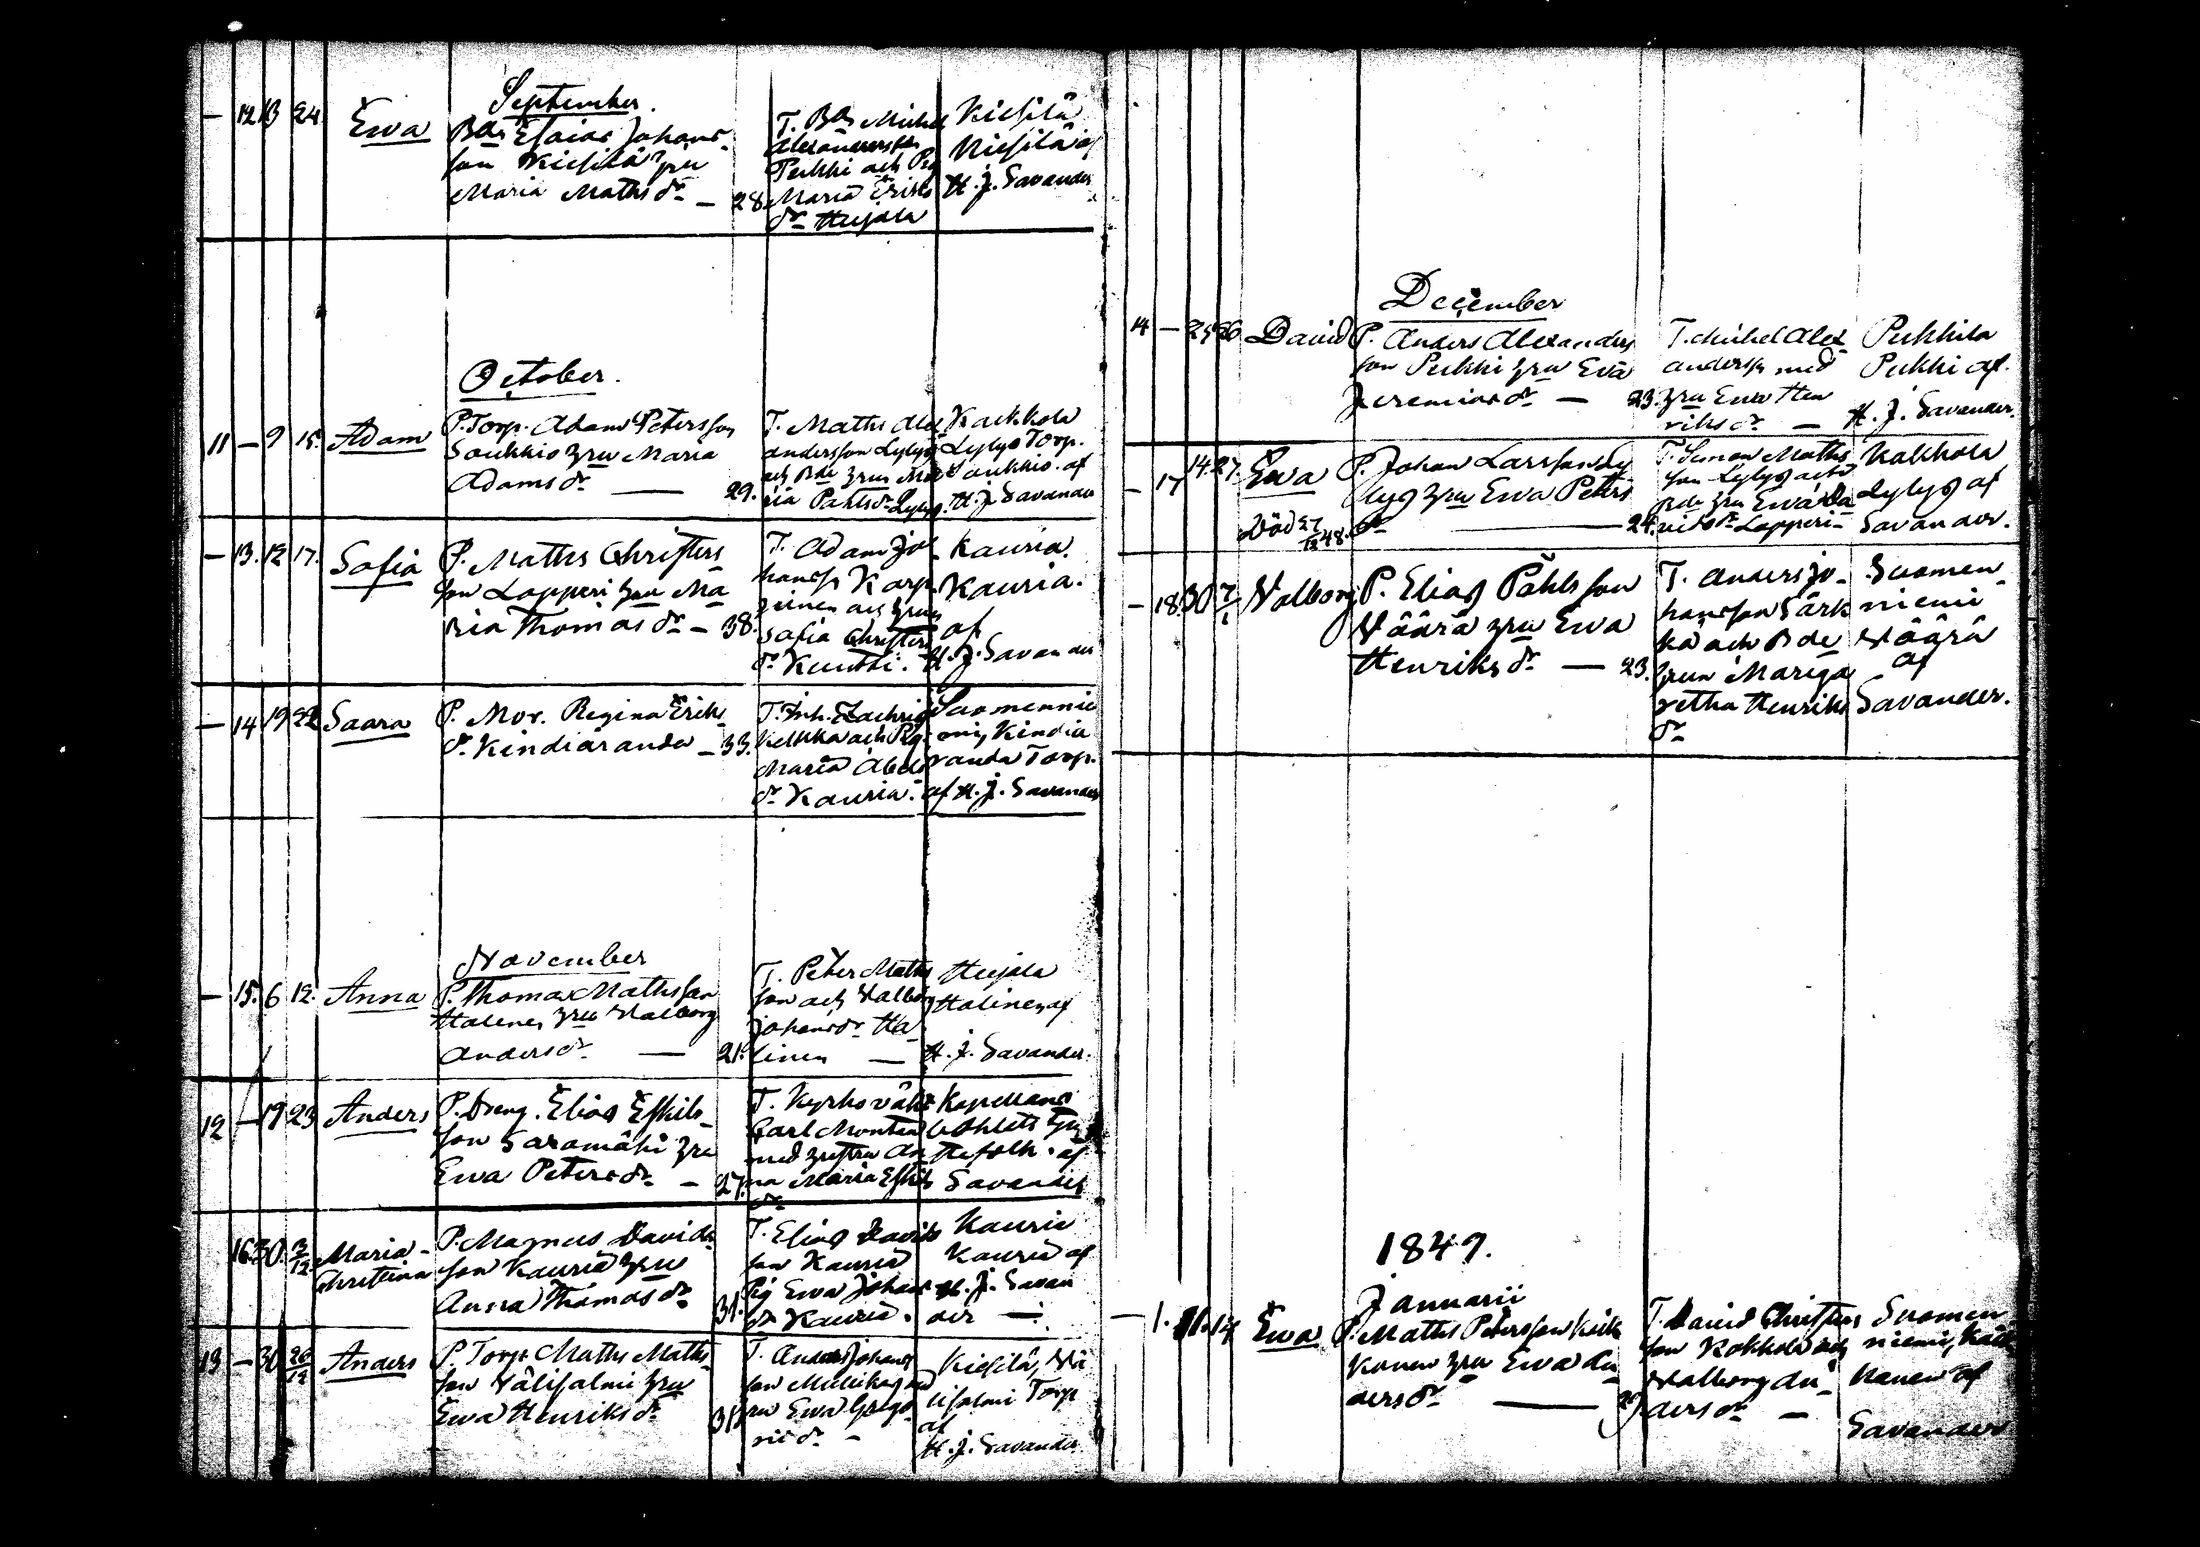 September.
— 12 13 24 Ewa Bds Esaias Johans-
son Kiesilä hru
Maria Mathsdr — 28.
T. Bds Michel
Alexandersson
Pukki och Pig
Maria Eriks
dr Hujala
Kiesilä
Kiesilä af
H. J. Savander
October.
11 — 9 15. Adam P. Torp. Adam Petersson
Saukkio hru Maria
Adamsdr — 29.
T. Maths Alex
andersson Lylys
och Bde hrun Ma
ria Pahlsdr Lylys.
Kackkola
Lylys Torp.
Saukkio. af
H. J. Savander
— 13. 12 17. Sofia P. Maths Christers
son Lapperi hru Ma
ria Thomasdr — 38.
T. Adam Jo
hanss Karp
peinen och hrun
Sofia Christers
dr Kuntti.
Kauria.
Kauria.
af
H. J. Savander
— 14 19 22 Saara P. Mor. Regina Eriks
dr Kindiäranda — 33.
T. Inh. Zachris
Kelkka och Pig
Maria Abels
dr Kauria.
Suomennie
mi, Kindiä
randa Torp.
af H. J. Savander
November
— 15. 6 12. Anna P. Thomas Mathsson
Halinen hru Walborg
Andersdr — 21.
T. Peter Maths
son och Walborg
Johansdr Ha
linen —
Hujala
Halinen af
H. J. Savander.
12 — 19 23 Anders P. Dreng. Elias Eskils-
son Saramäki hru
Ewa Petersdr — 27.
T. Kyrkovakt
Carl Monten
med hustru An
na Maria Eskils
dr
Kapellans
af
Savander
16. 30. 3/12 Maria
Christina P. Magnus Davids
son Kauria hru
Anna Thomasdr 31.
T. Elias Davids
son Kauria
Pig Ewa Johans
dr Kauria.
Kauria
Kauria af
H. J. Savan
der —
13 — 30 26/12 Anders P. Torp. Maths Maths-
son Välisalmi hru
Ewa Henriksdr 31.
T. Anders Johans
son Mullikas med
hru Ewa Grego
riidr —
Kiesilä, Vä
lisalmi Torp
af
H. J. Savander
December
14 — 25 26 David P. Anders Alexanders
son Pukki hru Eva
Jeremiasdr — 23.
T. Michel Alex
anderss med
hru Ewa Hen
riksdr —
Pukkila
Pukki af.
H. J. Savander.
— 17 14. 27. Ewa P. Johan Larsson Ly
lys hru Ewa Peters
dr — 24.
Död 27/12 48.
T. Simon Maths
son Lylys och
Bde hru Ewa Da
vidsdr Lapperi —
Kakkola
Lylys af
Savander.
— 18. 30 7/1 Walborg P. Elias Pahlsson
Väärä hru Ewa
Henriksdr — 23.
T. Anders Jo-
hansson Särk
kä och Bde
hrun Marga
retha Henriks
dr
Suomen-
niemi
Väärä
af
Savander.
1849.
Januarii
— 1. 11. 14 Ewa P. Maths Petersson Keik
konen hru Ewa An
dersdr —
T. David Christers
son Kokkola och
Walborg An-
dersdr —
Suomen
niemi, Keik
konen af
Savander